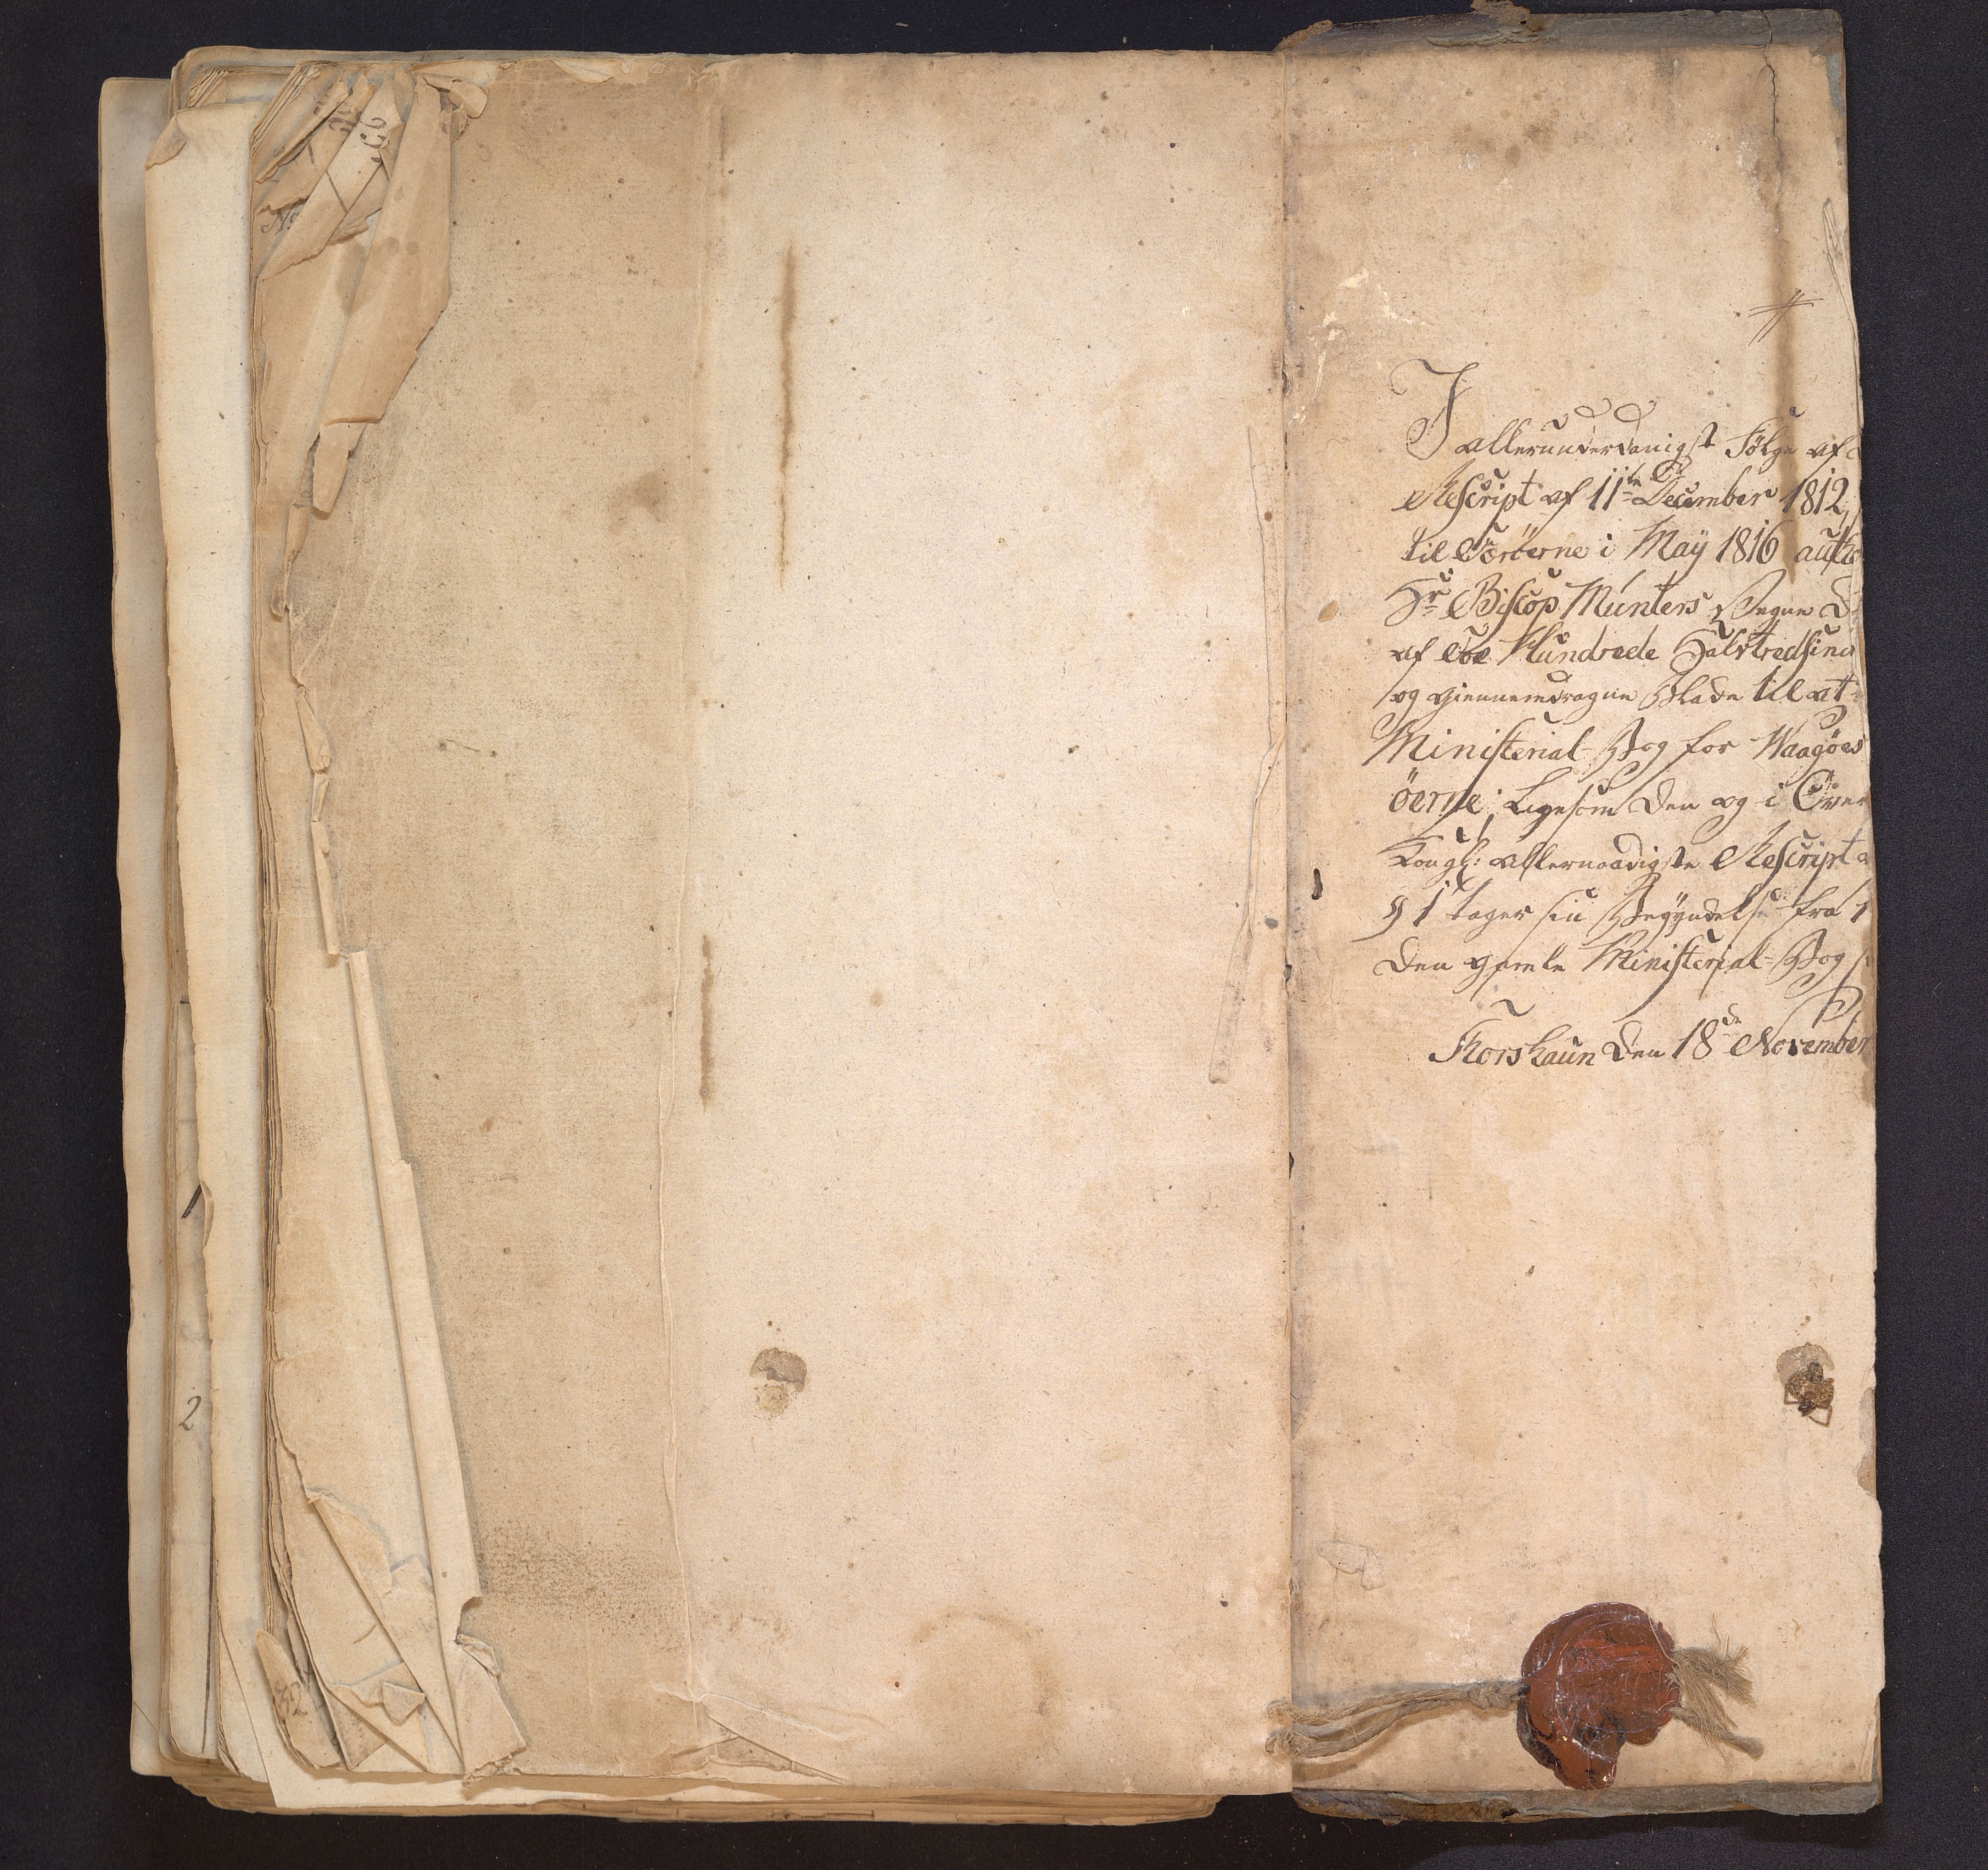 I allerunderdanigst Følge af
Rescript af 11te December 1812,
til Færöerne i Maÿ 1816 auth
Hr Biscop Münters Vegne
af Eet Hundrede Halvtredsinds
og gjennemdragne Blade til at
Ministerial-Bog for Waagöes
öerne; Ligesom den og i Over
Kongl: allernaadigste Rescript
§ 1 tager sin Begÿndelse fra 1
den gamle Ministerial-Bog
Thorshaun den 18de November
No
2
32